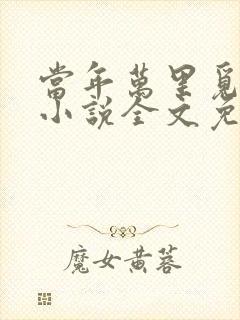 當年萬里覓
小說全文免
魔女黃蓉